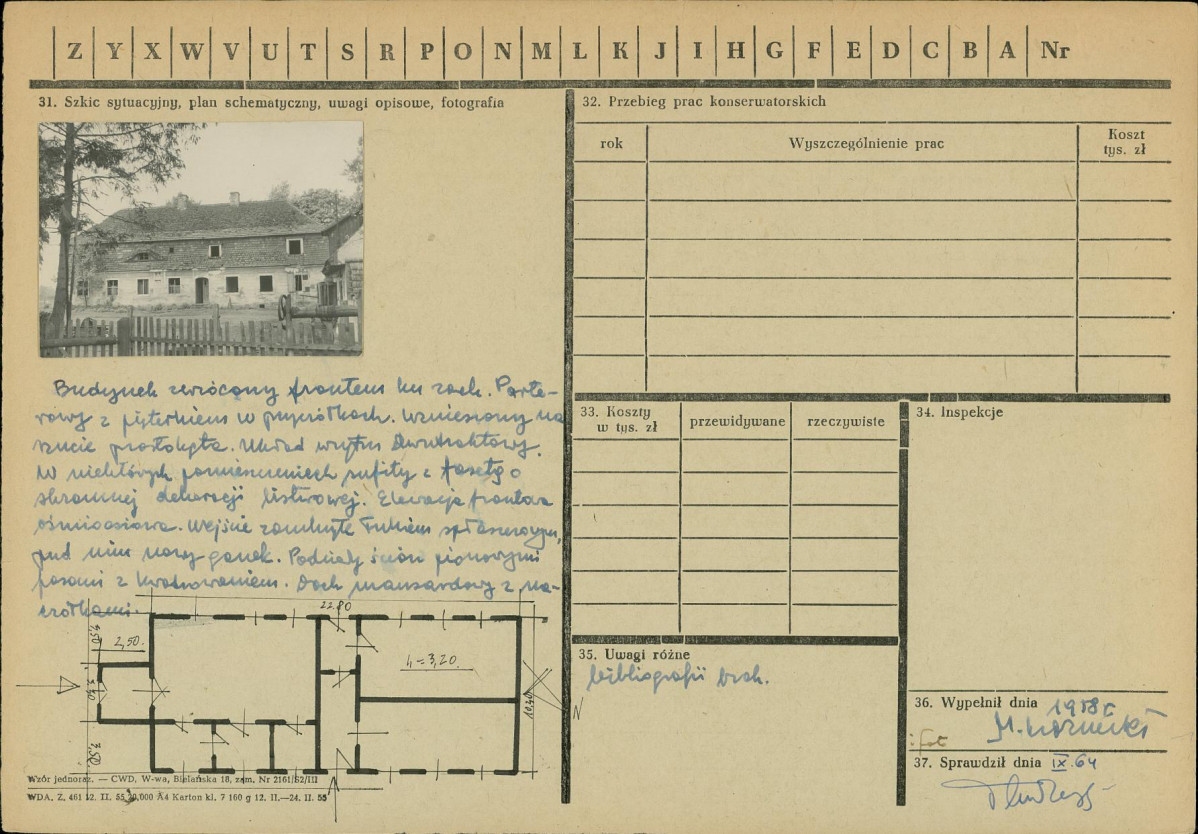 Z Y X W V U T S R P O N M L K J I H G F E D C B A Nr
31. Szkic sytuacyjny, plan schematyczny, uwagi opisowe, fotografia
Budynek zwrócony frontem ku zach. Parte-
rowy z pięterkiem w przyczółkach. Wzniesiony na
rzucie prostokąta. Układ wnętrz dwutraktowy.
W niektórych pomieszczeniach sufity z fasetą o
skromnej dekoracji listwowej. Elewacja frontowa
ośmioosiowa. Wejście zamknięte łukiem spłaszczonym,
nowy ganek. Podziały ścian pionowymi
pasami z boniowaniem. Dach mansardowy z na-
czółkami.
22.80
4,50
2,50.
h = 3,20.
3,50
10,40
N
Wzór jednoraz. — CWD, W-wa, Bielańska 18, zam. Nr 2161/52/III
WDA. Z. 461 12. II. 55 20.000 A4 Karton kl. 7 160 g 12. II.—24. II. 55
32. Przebieg prac konserwatorskich
rok
Wyszczególnienie prac
Koszt
tys. zł
33. Koszty
w tys. zł
przewidywane
rzeczywiste
34. Inspekcje
35. Uwagi różne
bibliografii brak.
36. Wypełnił dnia 1958 r
i fot M. Kornecki
37. Sprawdził dnia IX. 64